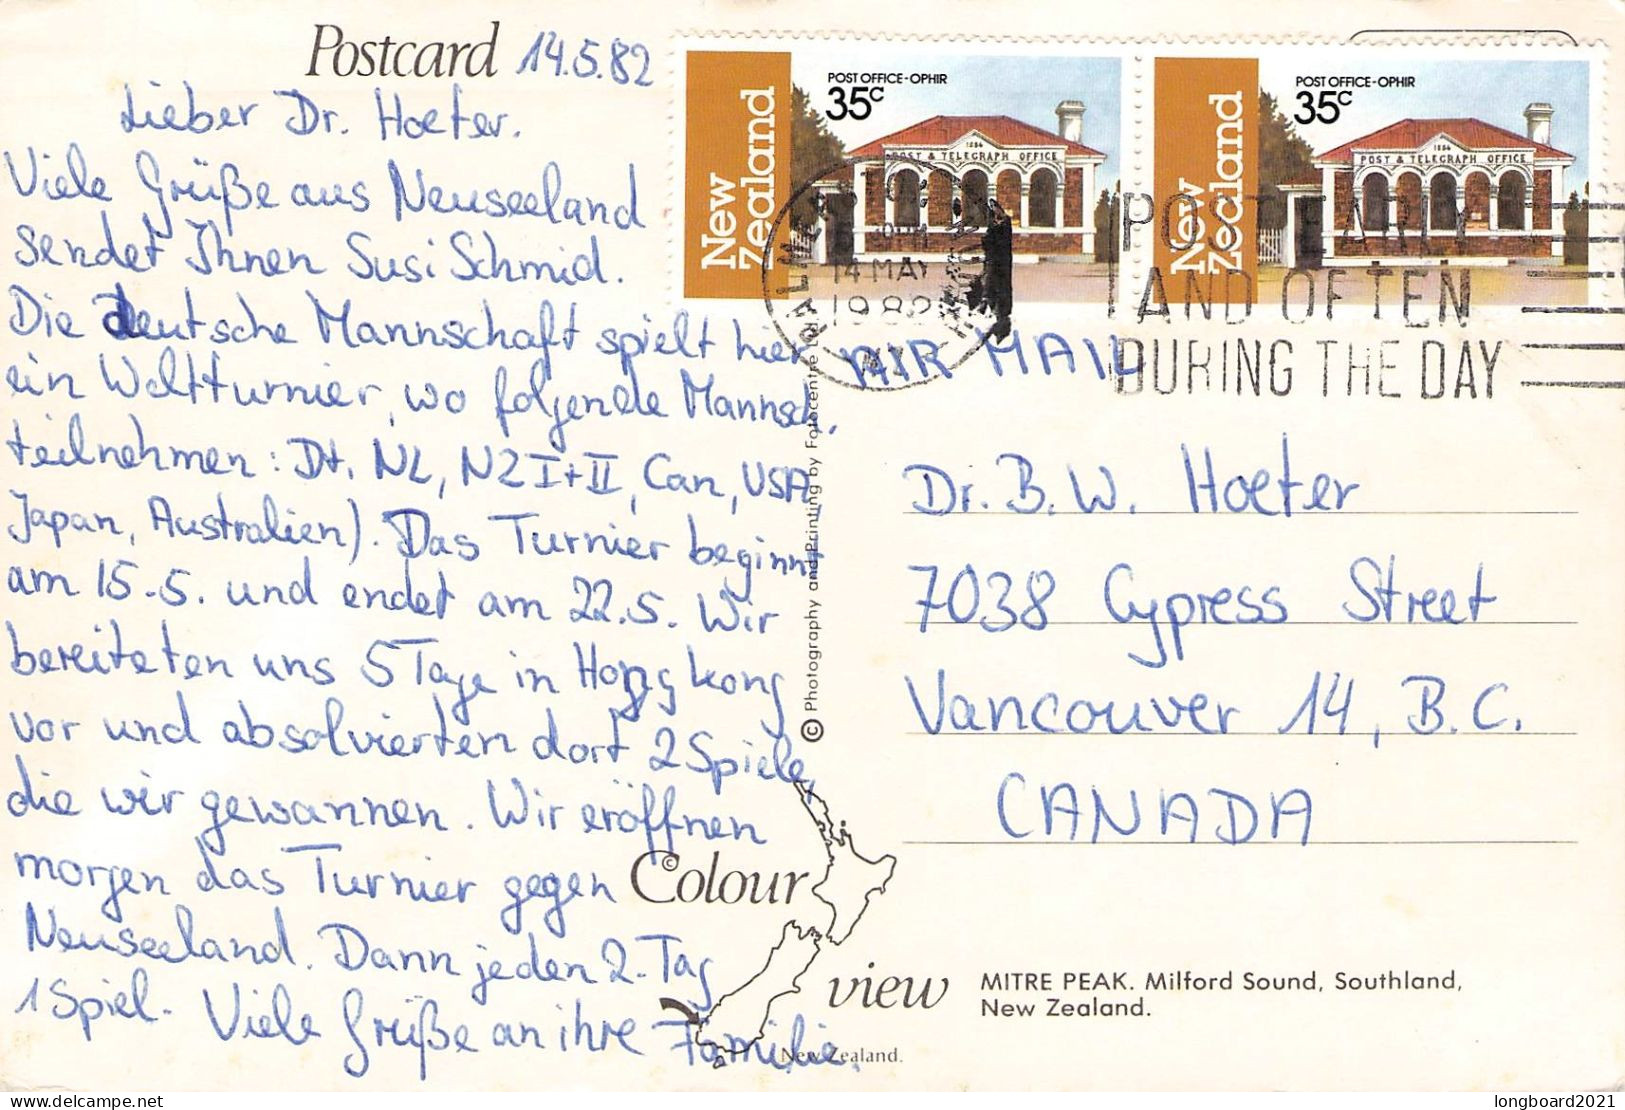 Postcard 14.5.82
Lieber Dr. Hoeter.
Viele Grüße aus Neuseeland
sendet Ihnen Susi Schmid.
Die deutsche Mannschaft spielt hier
ein Weltturnier, wo folgende Mannsch.
teilnehmen: Dt, NL, NZ I+II, Can, USA
Japan, Australien). Das Turnier beginnt
am 15.5. und endet am 22.5. Wir
bereiteten uns 5 Tage in Hongkong
vor und absolvierten dort 2 Spiele,
die wir gewannen. Wir eröffnen
morgen das Turnier gegen
Neuseeland. Dann jeden 2. Tag
1 Spiel. Viele Grüße an ihre Familie.
New Zealand
POST OFFICE-OPHIR
35c
1886
POST & TELEGRAPH OFFICE
New Zealand
POST OFFICE-OPHIR
35c
1886
POST & TELEGRAPH OFFICE
PALMERSTON NORTH
14 MAY
1982
POST EARLY
AND OFTEN
DURING THE DAY
AIR MAIL
Dr. B. W. Hoeter
7038 Cypress Street
Vancouver 14, B.C.
CANADA
© Photography and Printing by Fotocentre
© Colour
view
New Zealand.
MITRE PEAK. Milford Sound, Southland,
New Zealand.
longboard2021